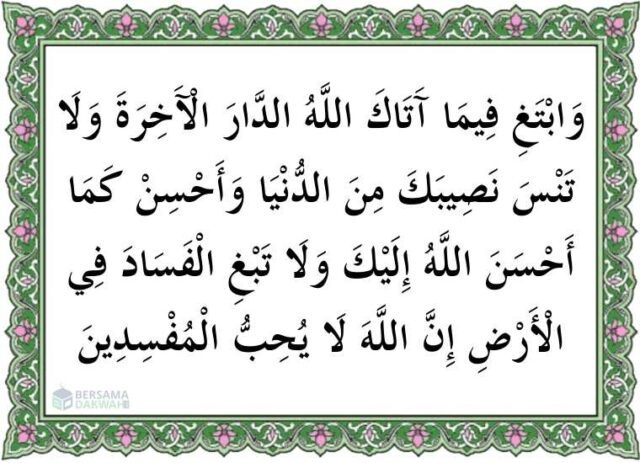 وَابْتَغِ فِيمَا آتَاكَ اللَّهُ الدَّارَ الْآخِرَةَ وَلَا
تَنْسَ نَصِيبَكَ مِنَ الدُّنْيَا وَأَحْسِنْ كَمَا
أَحْسَنَ اللَّهُ إِلَيْكَ وَلَا تَبْغِ الْفَسَادَ فِي
الْأَرْضِ إِنَّ اللَّهَ لَا يُحِبُّ الْمُفْسِدِينَ
BERSAMA
DAKWAH